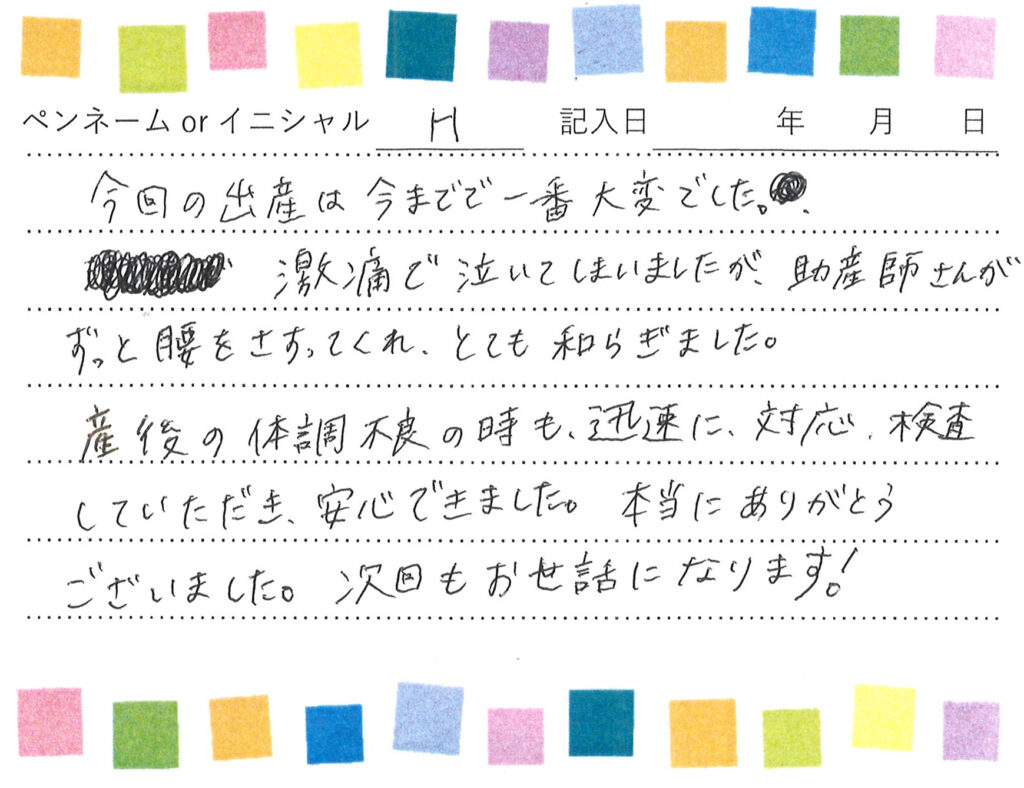 ペンネーム or イニシャル H 記入日 年 月 日
今回の出産は今までで一番大変でした。
激痛で泣いてしまいましたが、助産師さんが
ずっと腰をさすってくれ、とても和らぎました。
産後の体調不良の時も、迅速に、対応、検査
していただき、安心できました。本当にありがとう
ございました。次回もお世話になります!